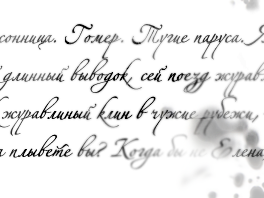 сонница. Гомер. Тугие паруса. Я
длинный выводок, сей поезд журав
журавлиный клин в чужие рубежи,
а плывете вы? Когда бы не Елена